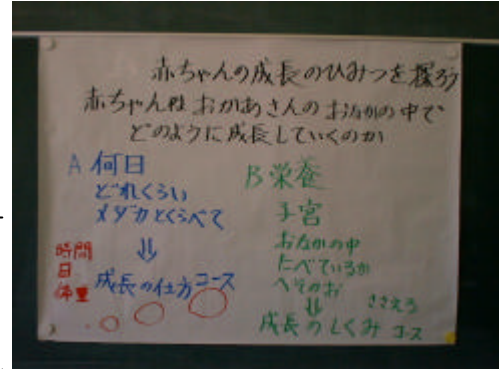 赤ちゃんの成長のひみつを探ろう
赤ちゃんは おかあさんの おなかの中で、
どのように成長していくのか
A 何日
どれくらい
メダカとくらべて
⇓
時間
日
体重
成長の仕方コース
B 栄養
子宮
おなかの中
たべているか
へそのお
⇓ ささえる
成長のしくみ コース